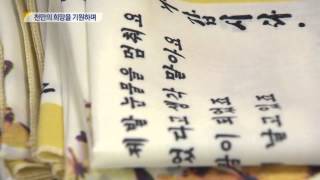 천만의 희망을 기원하며
제발 눈물을 멈춰요
었다고 생각 말아요
이 되었죠
날고 있죠